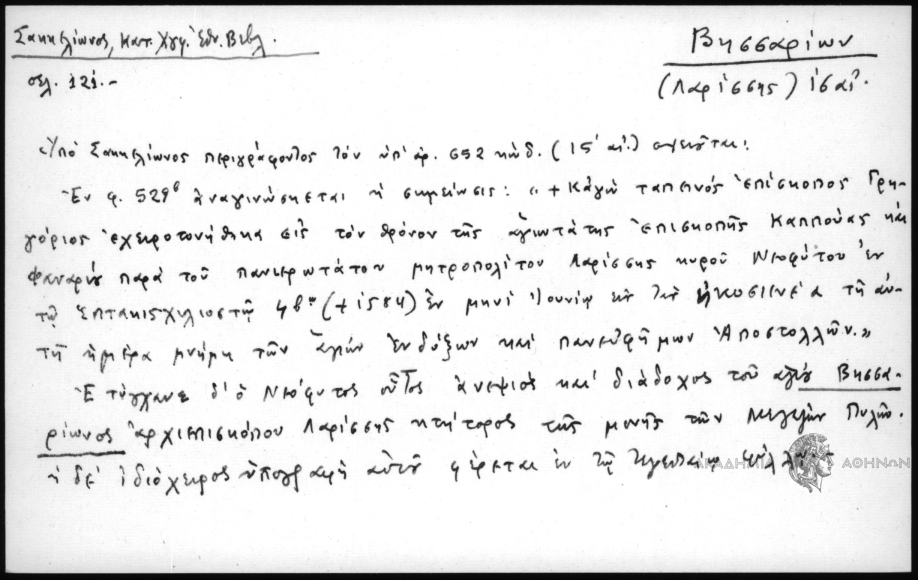 Σακκελίωνος, Κατ. Χγφ. Ἐθν. Βιβλ.
Βησσαρίων
σελ. 121.-
(Λαρίσσης) ις αἰ.
«Ὑπὸ Σακκελίωνος περιγράφοντος τὸν ὑπ' ἀρ. 652 κώδ. (15' αἰ.) σημειοῦται:
Ἐν φ. 529β ἀναγινώσκεται ἡ σημείωσις: «+ Κἀγὼ ταπεινός ἐπίσκοπος Γρη-
γόριος ἐχειροτονήθηκα εἰς τὸν θρόνον τῆς ἁγιωτάτης ἐπισκοπῆς Καππούας καὶ
Φαναρίου παρὰ τοῦ πανιερωτάτου μητροπολίτου Λαρίσσης κυροῦ Νεοφύτου ἐν
τῷ ἑπτακισχιλιοστῷ (+1584) ἐν μηνὶ Ἰουνίῳ εἰς τὰς ἠκοσιενέα τῇ αὐ-
τῇ ἡμέρα μνήμη τῶν ἁγίων ἐνδόξων καὶ πανευφήμων Ἀποστολλῶν.»
Ἐτύγχανε δ' ὁ Νεόφυτος οὗτος ἀνεψιὸς καὶ διάδοχος τοῦ ἁγίου Βησσα-
ρίωνος ἀρχιεπισκόπου Λαρίσσης κτήτορος τῆς μονῆς τῶν Μεγάλων Πυλῶν.
ἡ δὲ ἰδιόχειρος ὑπογραφὴ αὐτοῦ φέρεται ἐν τῇ
ΑΚΑΔΗΜΙΑ ΑΘΗΝΩΝ